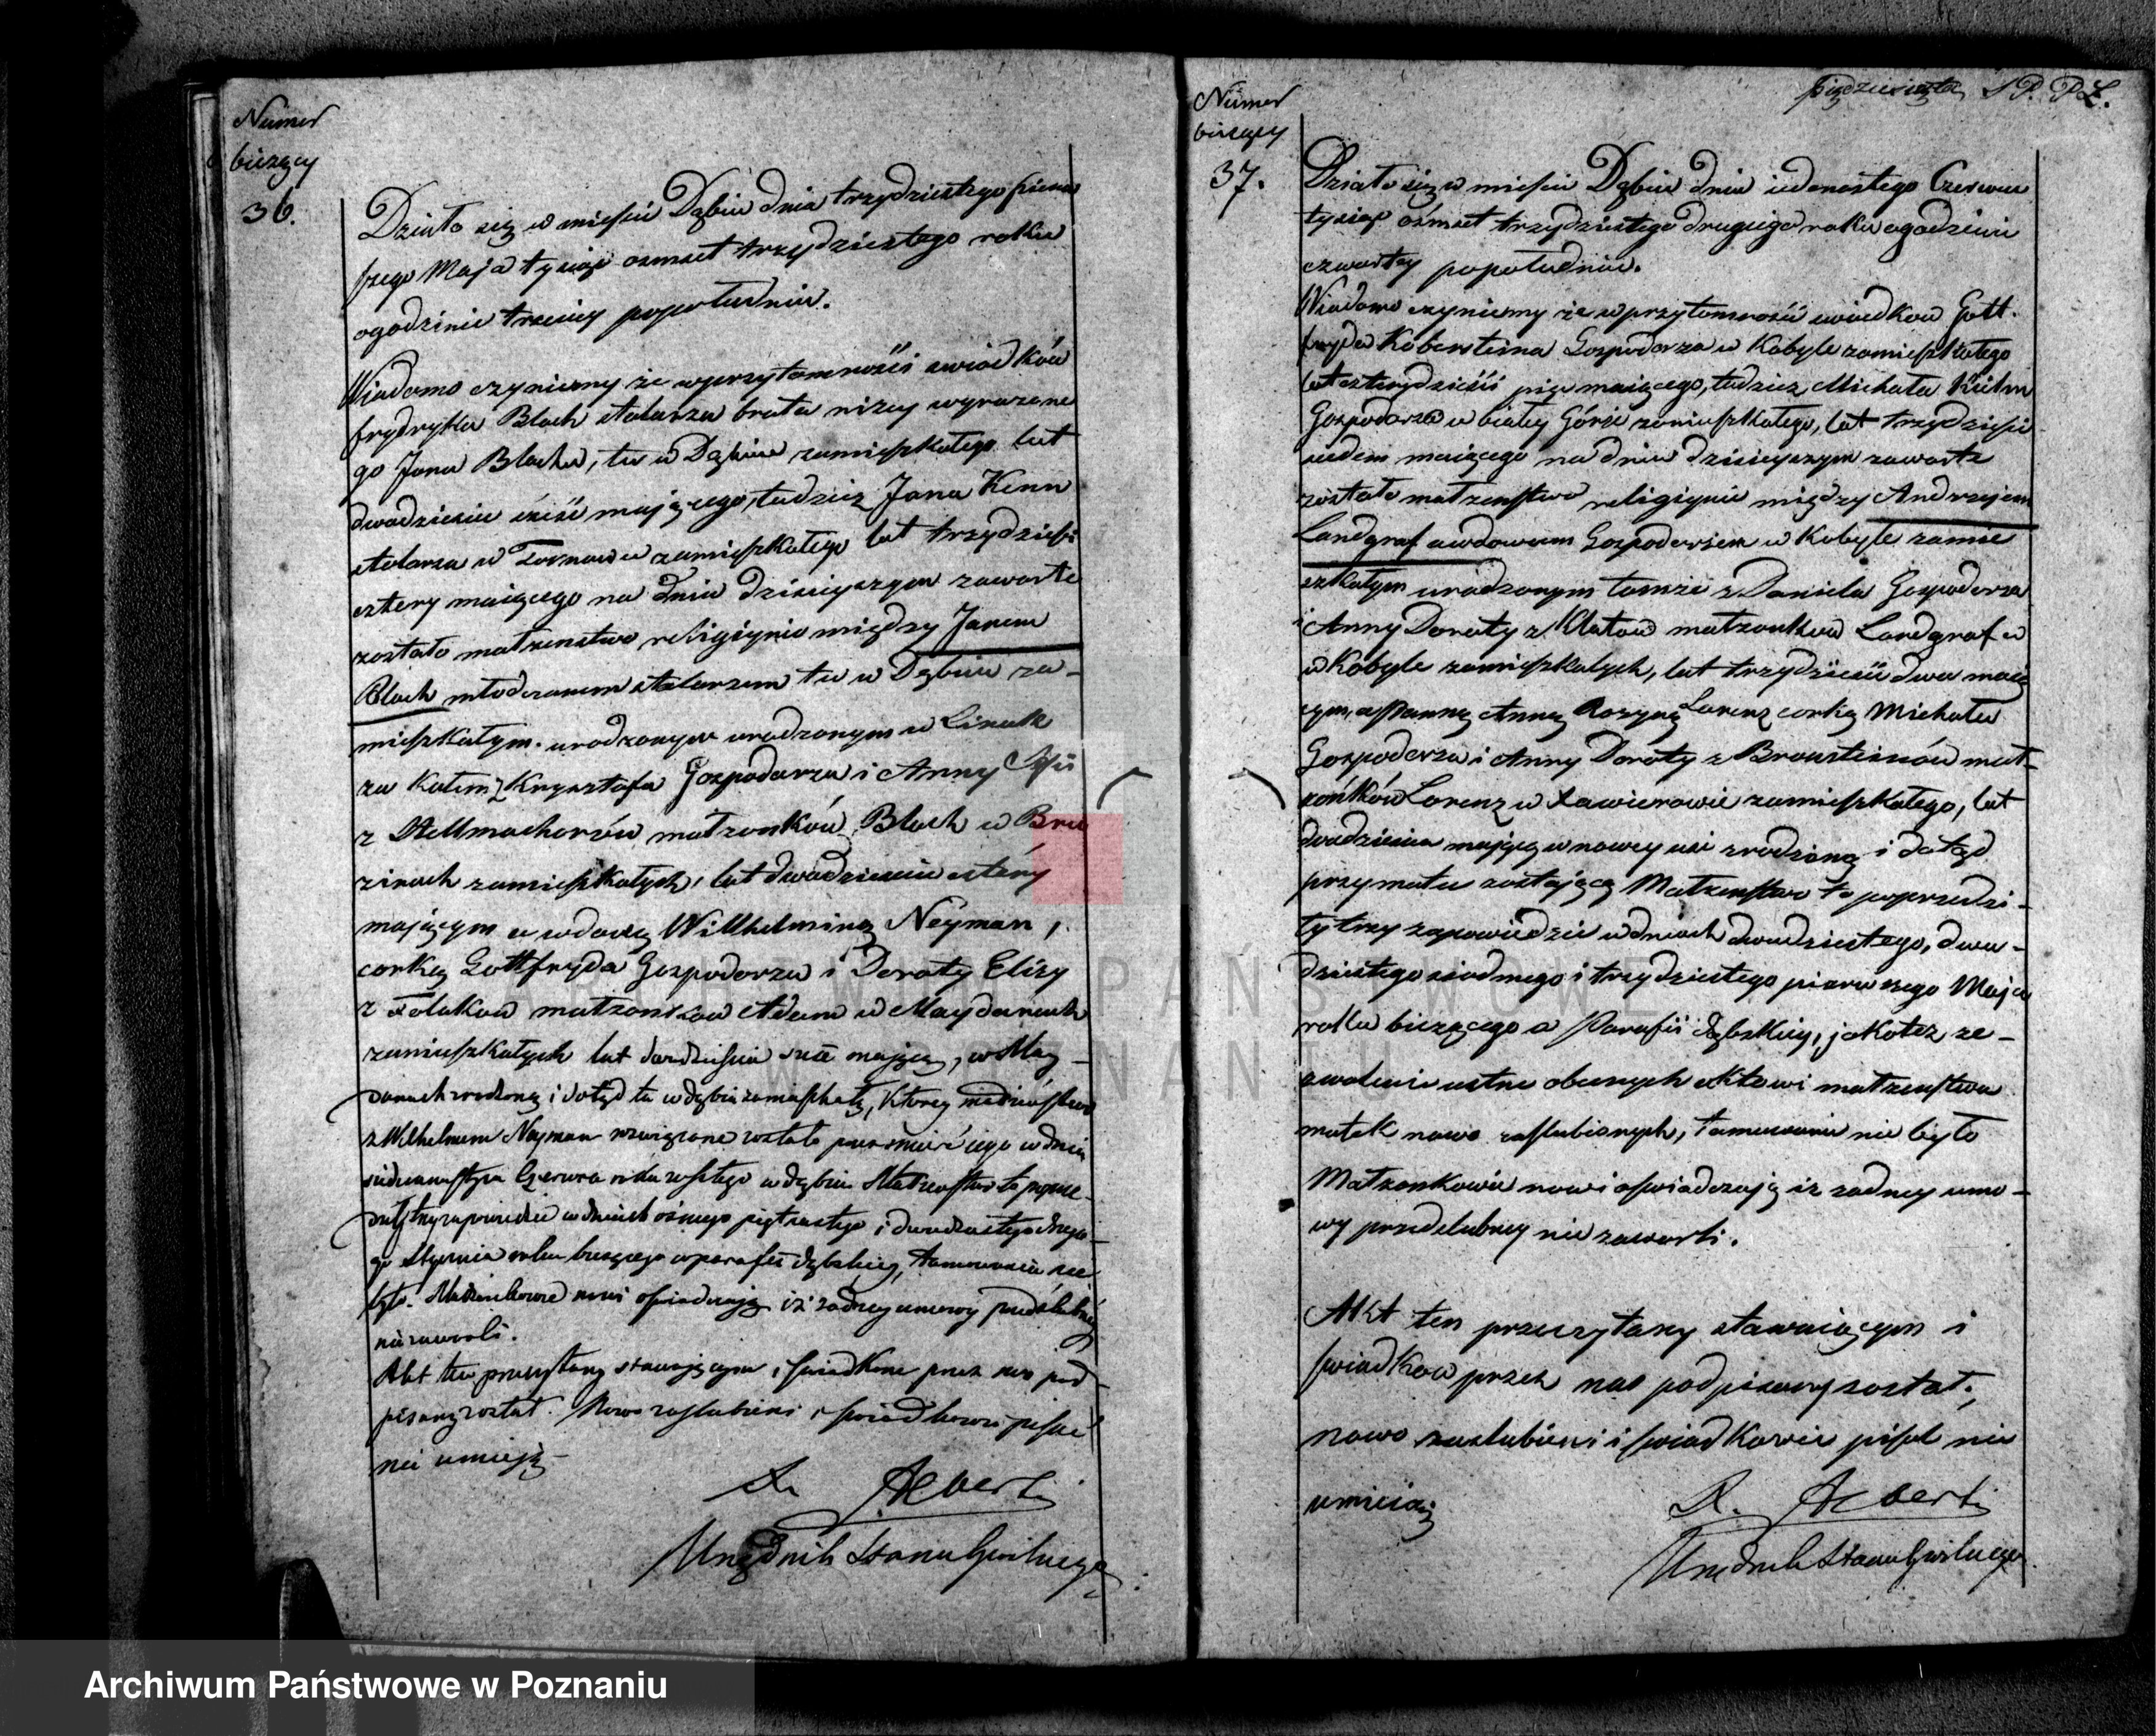 Numer
bieżący
36.
Działo się w mieście Dąbiu dnia trzydziestego pierw
szego Maja tysiąc osmset trzydziestego roku
o godzinie trzeciej popołudniu.
Wiadomo czyniemy że w przytomności swiadków
frydryka Bloch stolarza brata niżey wyrażone
go Jana Blocha, tu w Dąbiu zamieszkałego lat
dwadzieścia sześć mającego, tudzież Jana Kenn
stolarza w Tarnowie zamieszkałego lat trzydzieści
cztery maiącego na dniu dzisieyszym zawarte
zostało małżenstwo religiynie między Janem
Bloch młodzianem stolarzem tu w Dąbiu za-
mieszkałym. urodzonym urodzonym w
Krysztofa Gospodarza i Anny
z Stellmachorów małżonków Bloch w Bru
zinach zamieszkałych, lat dwadzieścia cztéry
mającym a wdową Willhelminą Neyman,
corką Gottfryda Gospodarza i Doroty Elizy
z małżonków Adam w Maydanach
zamieszkałych lat dwadzieścia sześć mającą, w May-
danach zrodzoną i dotąd tu w Dąbiu zamieszkałą, ktorey małżeństwo
z Wilhelmem Neyman rozwiązane zostało przez śmierć iego w dniu
siedmnastym Czerwca roku zeszłego w Dąbiu Małżeństwo to poprze-
dziły trzy zapowiedzie w dniach osmego piętnastego i dwudziestego drugie-
go Stycznia roku bieżącego w parafii dąbskiey, tamowania nie
było. Małżonkowie nowi oświadczają iż żadney umowy przedślubney
nie zawarli.
Akt ten przeczytany stawającym i świadkom przez nas pod-
pisany został. Nowo zaślubieni i świadkowie pisać
nie umieją-
A. Alberti
Urzędnik Stanu Cywilnego
pięćdziesiąta S P. P Z.
Numer
bieżący
37.
Działo się w mieście Dąbiu dnia iedenastego Czerwca
tysiąc ośmset trzydziestego drugiego roku o godzinie
czwartey popołudniu.
Wiadomo czyniemy że w przytomności swiadkow Gott-
fryda Kobersteina Gospodarza w Kobyle zamieszkałego
lat czterydzieści pięć maiącego, tudzież Michała Kühn
Gospodarza w białey Górze zamieszkałego, lat trzydzieści
siedem maiącego na dniu dzisieyszym zawarte
zostało małżenstwo religiynie między Andrzejem
Landgraf wdowcem Gospodarzem w Kobyle zamie
szkałym urodzonym tamże z Daniela Gospodarza
i Anny Doroty z Klatow małżonkow Landgraf w
w Kobyle zamieszkałych, lat trzydzieści dwa maią
cym, a Panną Anną Rozyną Lorenz corką Michała
Gospodarza i Anny Doroty z Braunsteinów mał-
żonków Lorenz w Xawierowie zamieszkałego, lat
dwadzieścia mającą w nowey wsi zrodzoną i dotąd
przy matce zostającą Małżeństwo to poprzedzi-
ły trzy zapowiedzie w dniach dwudziestego, dwu-
dziestego siodmego i trzydziestego pierwszego Maja
roku bieżącego w Parafii dąbskiey, jakoteż ze-
zwolenie ustne obecnych aktowi małżeństwa
matek nowo zaślubionych, tamowania nie było
Małżonkowie nowi oświadczają iż żadney umo-
wy przedslubney nie zawarli.
Akt ten przeczytany stawaiącym i
świadkow przez nas podpisany został,
nowo zaslubieni i świadkowie pisać nie
umieią
A. Alberti
Urzędnik Stanu Cywilnego
ARCHIWUM PAŃSTWOWE
W POZNANIU
Archiwum Państwowe w Poznaniu